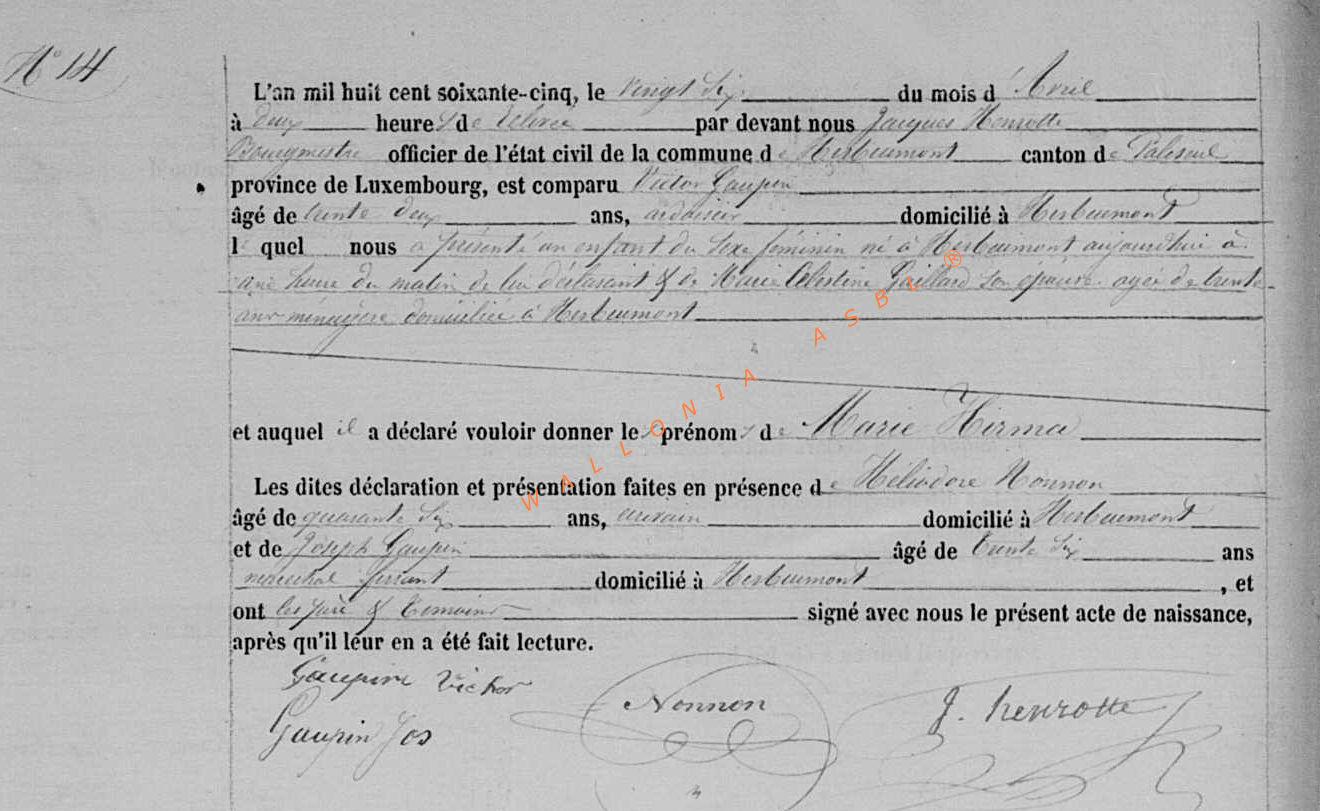 N° 14
L'an mil huit cent soixante-cinq, le vingt six du mois d'Avril
à deux heures de relevée par devant nous Jacques Henrotte
Bourgmestre officier de l'état civil de la commune de Herbeumont canton de Paliseul
province de Luxembourg, est comparu Victor Gaupin
âgé de trente deux ans, ardoisier domicilié à Herbeumont
lequel nous a présenté un enfant du sexe féminin né à Herbeumont aujourd'hui à
une heure du matin de lui déclarant & de Marie Célestine Gaillard son épouse agée de trente
ans ménagère domiciliée à Herbeumont
et auquel il a déclaré vouloir donner les prénoms de Marie Hirma
Les dites déclaration et présentation faites en présence de Héliodore Nonnon
âgé de quarante six ans, domicilié à Herbeumont
et de Joseph Gaupin âgé de trente six ans
maréchal ferrant domicilié à Herbeumont, et
ont les père & témoins signé avec nous le présent acte de naissance,
après qu'il leur en a été fait lecture.
Gaupin Victor
Nonnon
J. henrotte
Gaupin Jos
WALLONIA ASBL ®